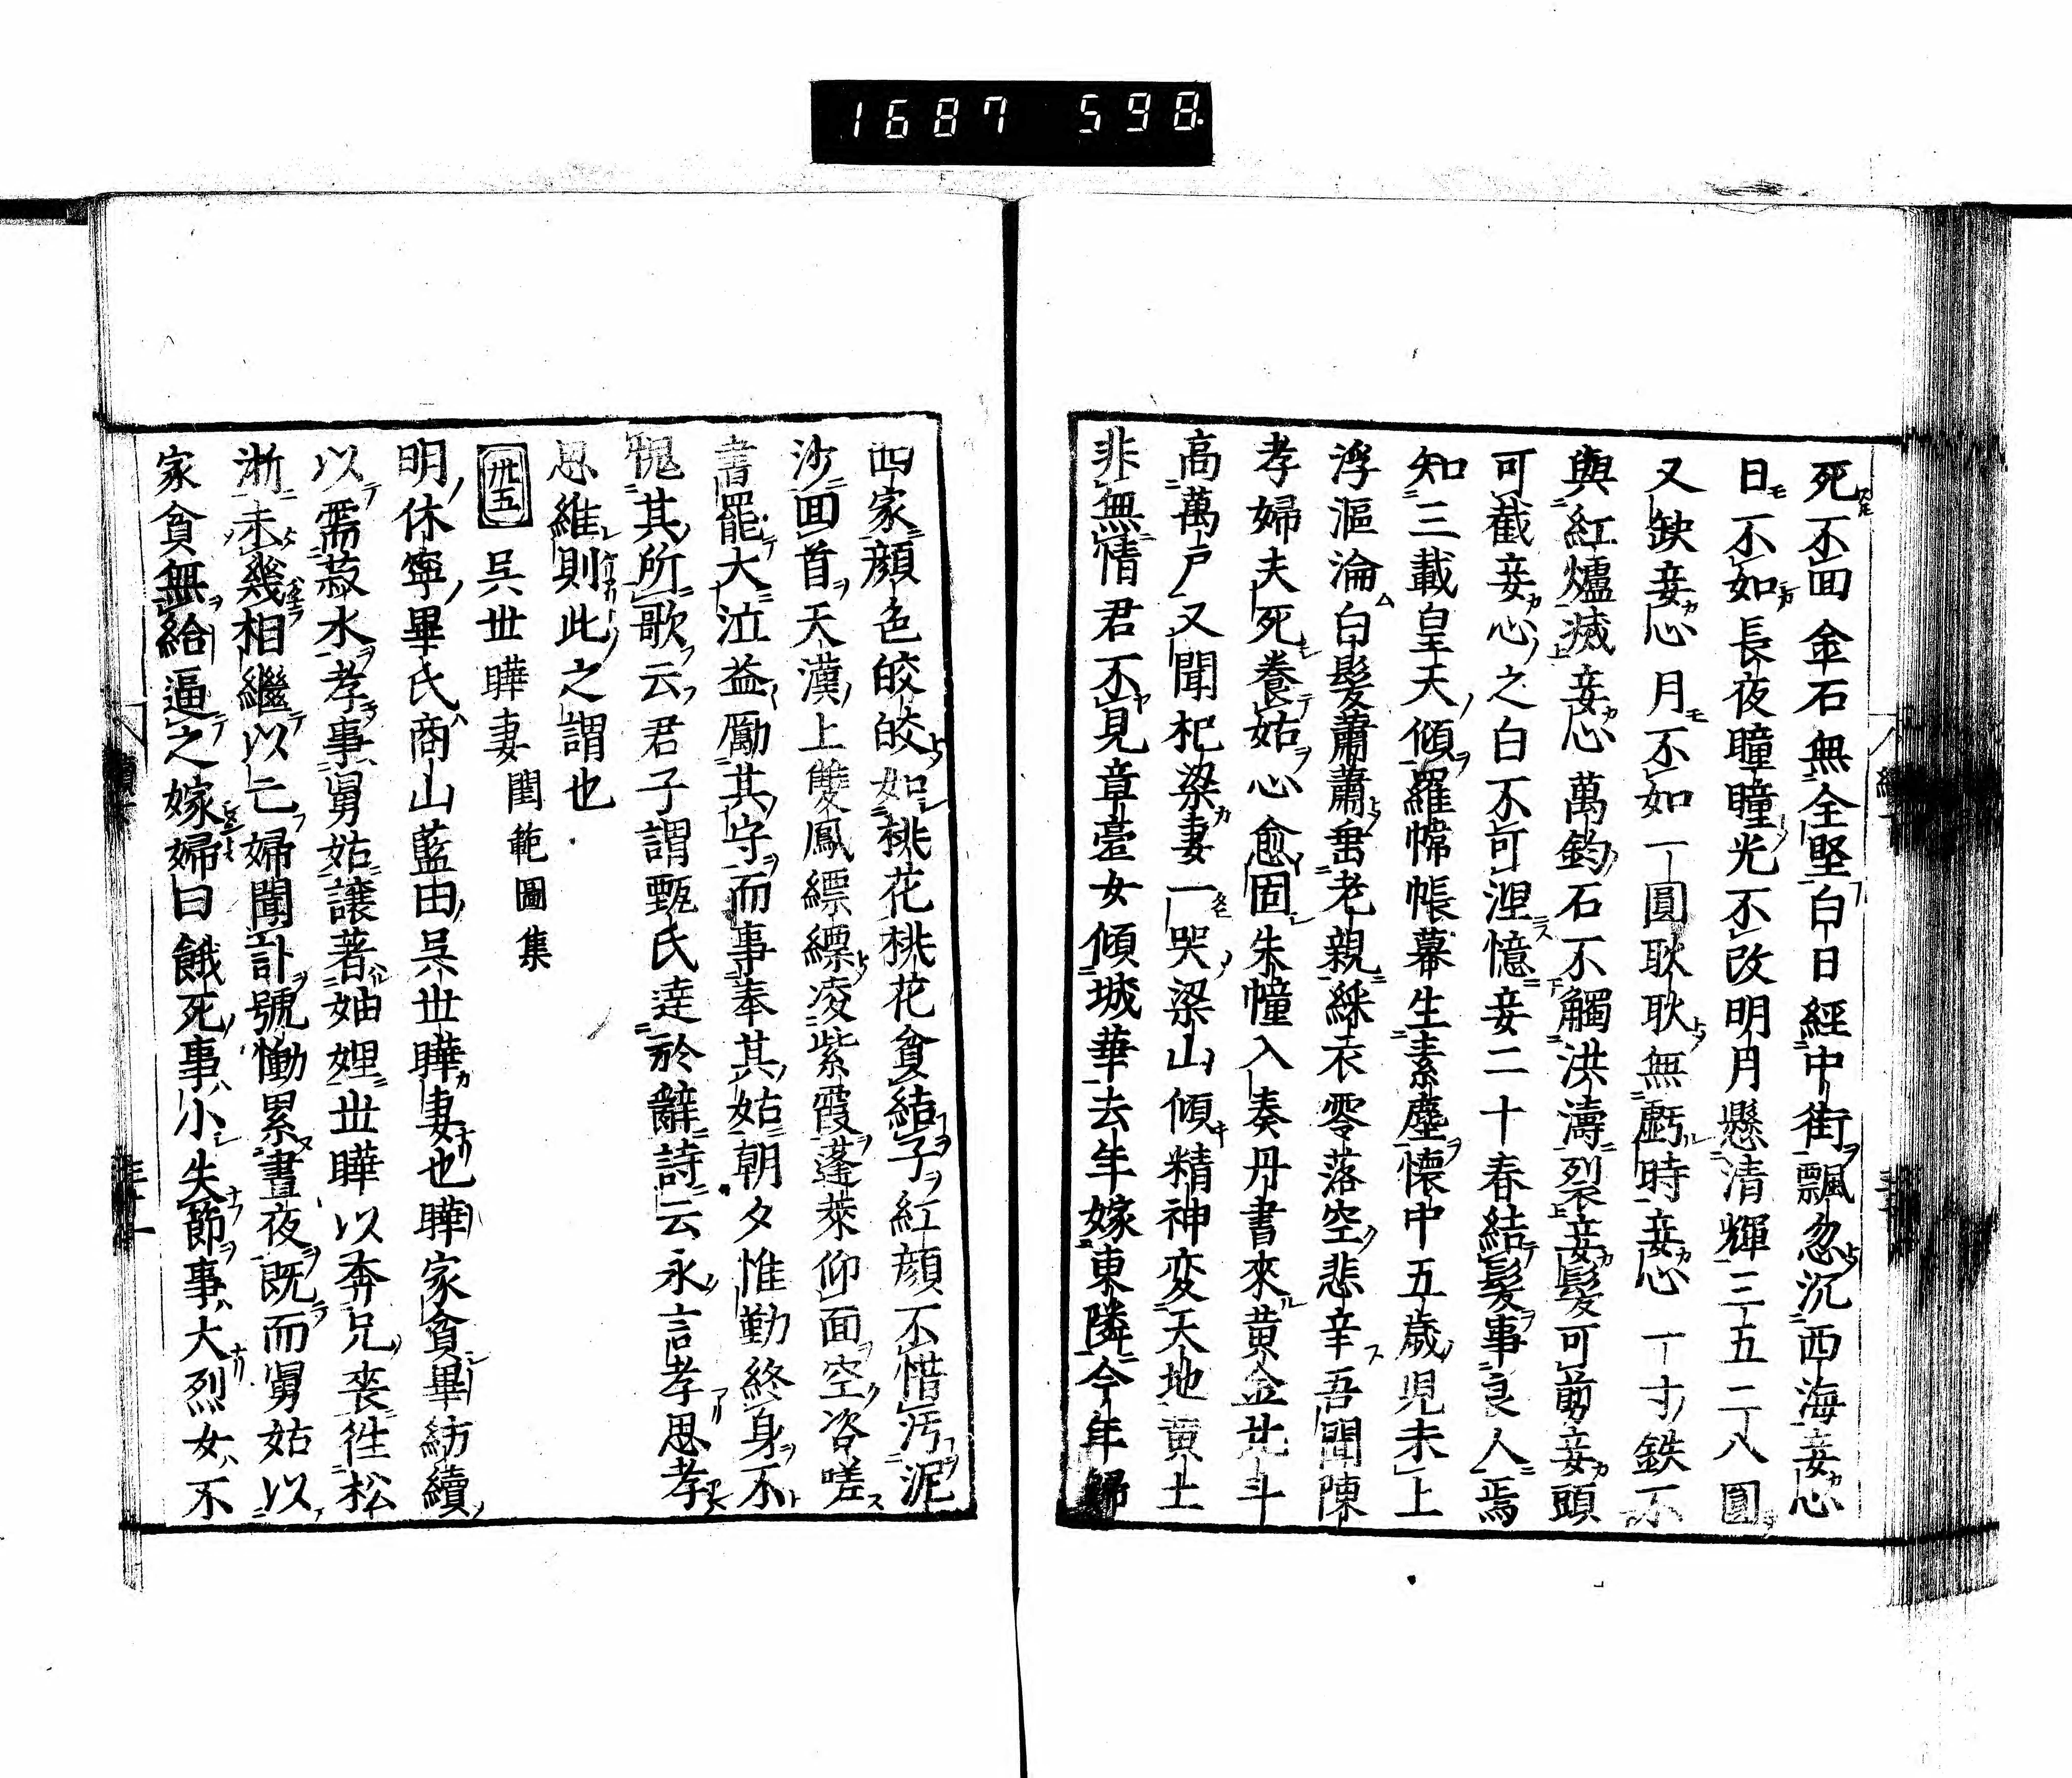 1687 598
死不回金石無全堅白日經中街飄忽沉西海妾心
日不如長夜瞳瞳光不改明月懸清輝三五二八圓
又缺妾心月不如一圓耿耿無虧時妾心一寸鉄不
與紅爐滅妾心萬鈞石不觸洪濤裂妾髮可剪妾頭
可截妾心之白不可涅憶妾二十春結髮事良人焉
知三載皇天傾羅幃帳幕生素塵懐中五歳児未上
浮漚淪白髮蕭蕭垂老親綵衣零落空悲辛吾聞陳
孝婦夫死養姑心愈固朱幢入奏丹書來黄金北斗
高萬戸又聞杞梁妻一哭梁山傾精神変天地黄土
非無情君不見章薹女傾城華去年嫁東隣今年歸
西家顔色皎皎如桃花桃花貪結子紅顔不惜汚泥
沙回首天漢上雙鳳縹縹凌紫霞蓬莱仰面空咨嗟
書罷大泣益勵其守而事奉其姑朝夕惟勤終身不
愧其所歌云君子謂甄氏達於辭詩云永言孝思孝
思維則此之謂也
卅五 呉世曄妻 閨範圖集
明休寧畢氏商山藍由呉世曄妻也曄家貧畢紡績
以需菽水孝事舅姑譲著妯娌世曄以奔兄喪徃松
浙未幾相繼以亡婦聞訃號慟累晝夜既而舅姑以
家貧無給逼之嫁婦曰餓死事小失節事大烈女不